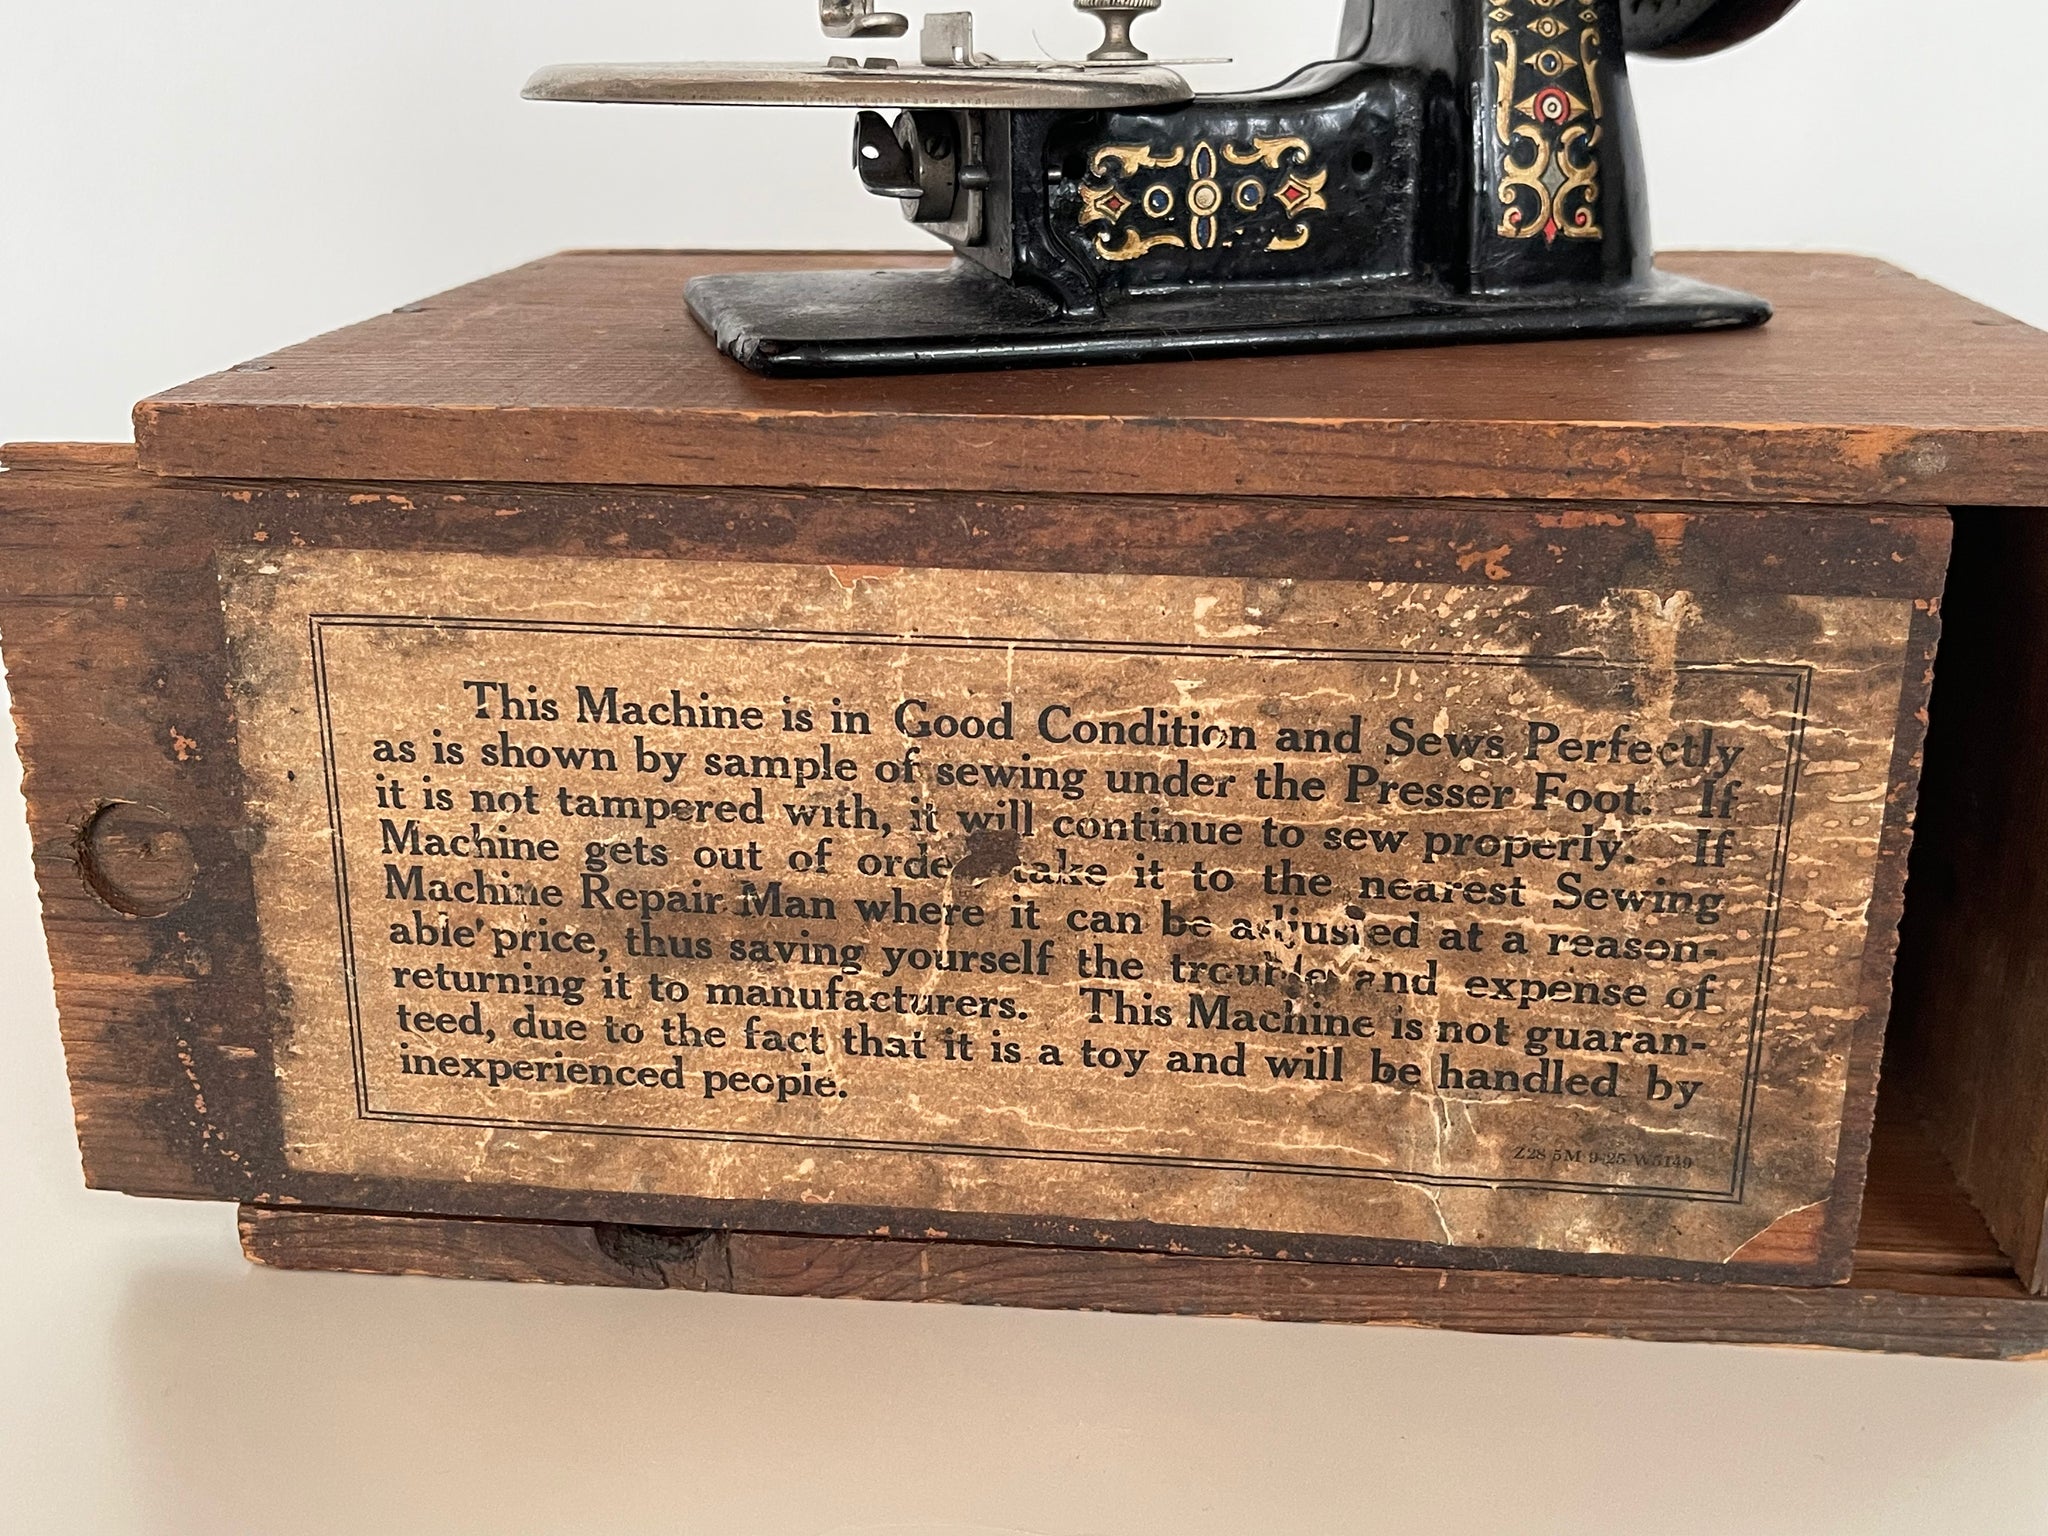 This Machine is in Good Condition and Sews Perfectly
as is shown by sample of sewing under the Presser Foot. If
it is not tampered with, it will continue to sew properly. If
Machine gets out of order take it to the nearest Sewing
Machine Repair Man where it can be adjusted at a reason-
able price, thus saving yourself the trouble and expense of
returning it to manufacturers. This Machine is not guaran-
teed, due to the fact that it is a toy and will be handled by
inexperienced people.
Z28 5M 9-25 W5149